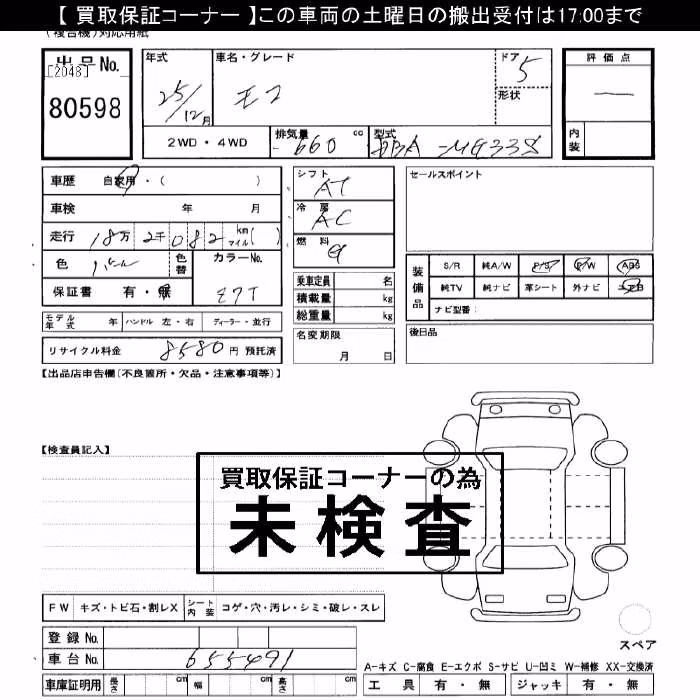 【 買取保証コーナー 】この車両の土曜日の搬出受付は17:00まで
(複合機)対応用紙
出品No.
[2048]
80598
年式
25/12月
車名・グレード
モコ
ドア
5
形状
評価点
―
内装
2WD・4WD
排気量
660 cc
型式
DBA-MG33S
車歴 自家用・( )
車検 年 月
走行 18万 2千 082 km マイル( )
色
色替
カラーNo.
Z7T
保証書 有・無
モデル年式 年 ハンドル 左・右 ディーラー・並行
リサイクル料金 8580 円 預託済
シフト
AT
冷房
AC
燃料
G
乗車定員 名
積載量 kg
総重量 kg
名変期限
月 日
セールスポイント
装備品
S/R 純A/W P/S P/W ABS
純TV 純ナビ 革シート 外ナビ エアB
ナビ型番:
後日品
【出品店申告欄(不良箇所・欠品・注意事項等)】
【検査員記入】
買取保証コーナーの為
未検査
FW キズ・トビ石・割レX シート内装 コゲ・穴・汚レ・シミ・破レ・スレ
登録 No.
車台 No. 655491
車庫証明用 長さ cm 幅 cm 高さ cm
スペア
A-キズ C-腐食 E-エクボ S-サビ U-凹ミ W-補修 XX-交換済
工具 有・無 ジャッキ 有・無